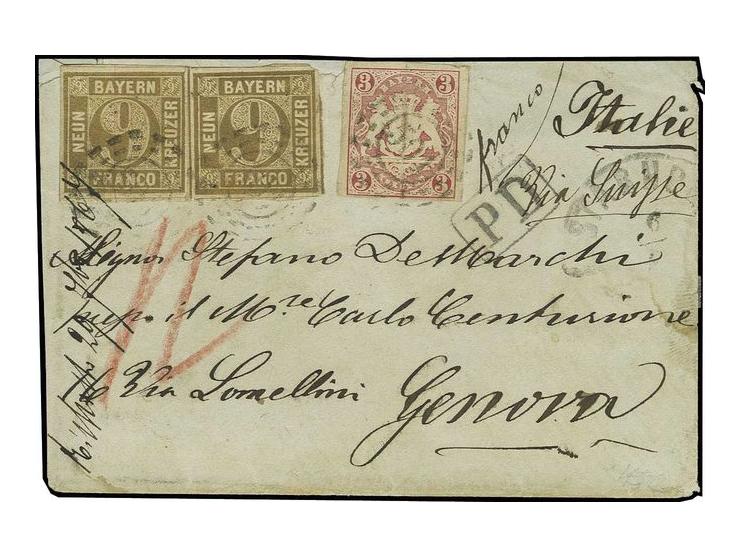 BAYERN
NEUN
9
KREUZER
FRANCO
BAYERN
NEUN
9
KREUZER
FRANCO
3 BAYERN 3
3 3
franco
Italie
Via Suisse
PD
Signor Stefano DeMarchi
nep. il M.se Carlo Centurione
Via Lomellini
Genova
12